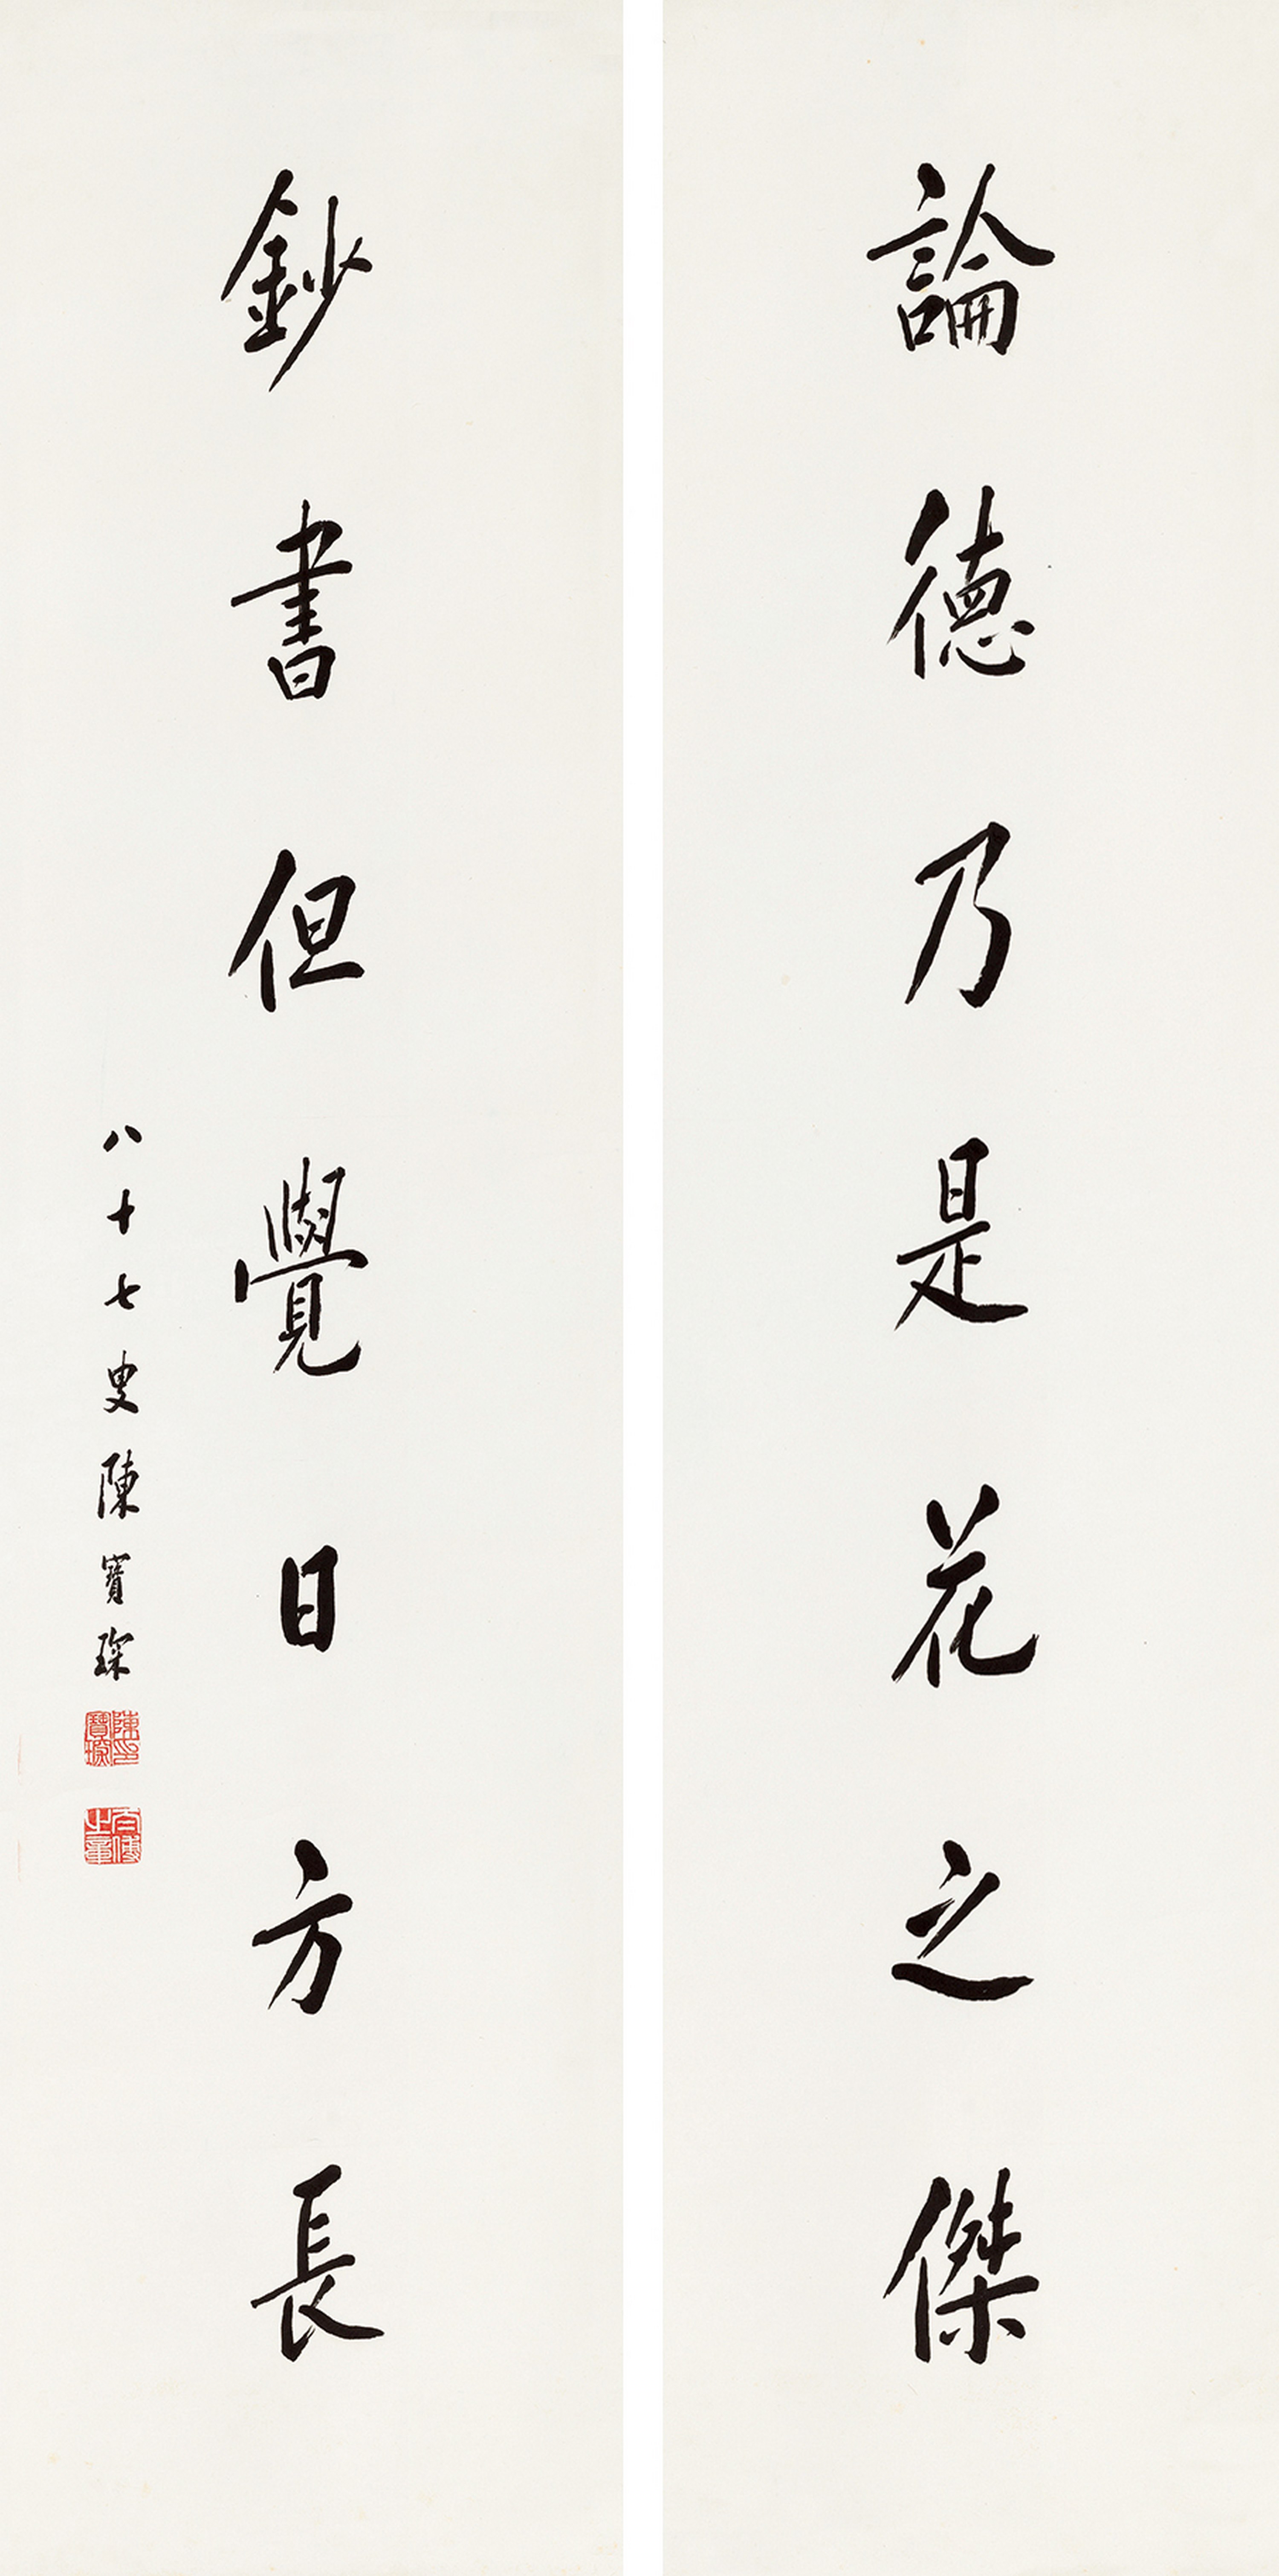 論德乃是花之傑
鈔書但覺日方長
八十七叟陳寶琛
陳寶琛印
太傅之章